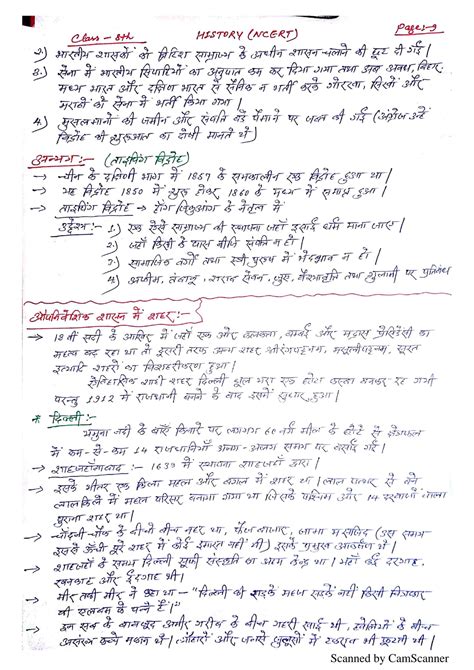 Class - 8th HISTORY (NCERT) Page:-9
2.) भारतीय शासकों को ब्रिटिश साम्राज्य के अधीन शासन चलाने की छूट दी गई |
3.) सेना में भारतीय सिपाहियों का अनुपात कम कर दिया गया तथा अवध, बिहार,
मध्य भारत और दक्षिण भारत से सैनिक न भर्ती करके गोरखा, सिखों और
की सेना में भर्ती किया गया |
4.) मुसलमानों की जमीन और संपत्ति बड़े पैमाने पर जब्त की गई (अंग्रेज उन्हें
विद्रोह की शुरूआत का दोषी मानते थे)
अन्यत्र :- (ताइपिंग विद्रोह)
→ चीन के दक्षिणी भाग में 1857 के समकालीन एक विद्रोह हुआ था |
→ यह विद्रोह 1850 में शुरू होकर 1860 के मध्य में समाप्त हुआ |
→ ताइपिंग विद्रोह → के नेतृत्व में
उद्देश्य:- 1.) एक ऐसे साम्राज्य की स्थापना जहाँ ईसाई धर्म माना जाए |
2.) जहाँ किसी के पास निजी संपत्ति न हो |
3.) सामाजिक वर्गों तथा स्त्री पुरुष में भेदभाव न हो |
4.) अफीम, तंबाकू, शराब सेवन, जुए, वेश्यावृत्ति तथा गुलामी पर प्रतिबंध
औपनिवेशिक शासन में शहर :-
→ 18 वीं सदी के आखिर में जहाँ एक ओर कलकत्ता, बम्बई और मद्रास प्रेसिडेंसी का
महत्व बढ़ रहा था तो दूसरी तरफ अन्य शहर मसूलीपट्टनम, सूरत
इत्यादि शहरों का विशहरीकरण हुआ |
ऐतिहासिक शाही शहर दिल्ली धूल भरा एक छोटा कस्बा बनकर रह गयी
परन्तु 1912 में राजधानी बनने के बाद इसमें सुधार हुआ |
दिल्ली:-
यमुना नदी के बाँए किनारे पर लगभग 60 वर्ग मील के छोटे से क्षेत्रफल
में कम-से-कम 14 राजधानियाँ अलग-अलग समय पर बसाई गई |
→ शाहजहाँनाबाद :- 1639 में स्थापना शाहजहाँ द्वारा |
→ इसके भीतर एक किला महल और बगल में शहर था | लाल पत्थर से बने
लालकिले में महल परिसर बनाया गया था जिसके पश्चिम ओर 14 दरवाजों वाला
पुराना शहर था |
→ चाँदनी चौक के बीचो बीच नहर था, जामा मस्जिद (उस समय
इससे ऊँची पूरे शहर में कोई इमारत नहीं थी) इसके प्रमुख आकर्षण थे |
→ शाहजहाँ के समय दिल्ली सूफी संस्कृति का अहम केन्द्र था | यहाँ कई दरगाह,
खानकाह और ईदगाह थी |
→ मीर तकी मीर ने कहा था - "दिल्ली की सड़कें महज सड़कें नहीं किसी चित्रकार
की एलबम के पन्ने हैं |"
→ इन सब के बावजूद अमीर गरीब के बीच गहरी खाई थी, हवेलियों के बीच
असंख्य कच्चे मकान थे |
Scanned by CamScanner